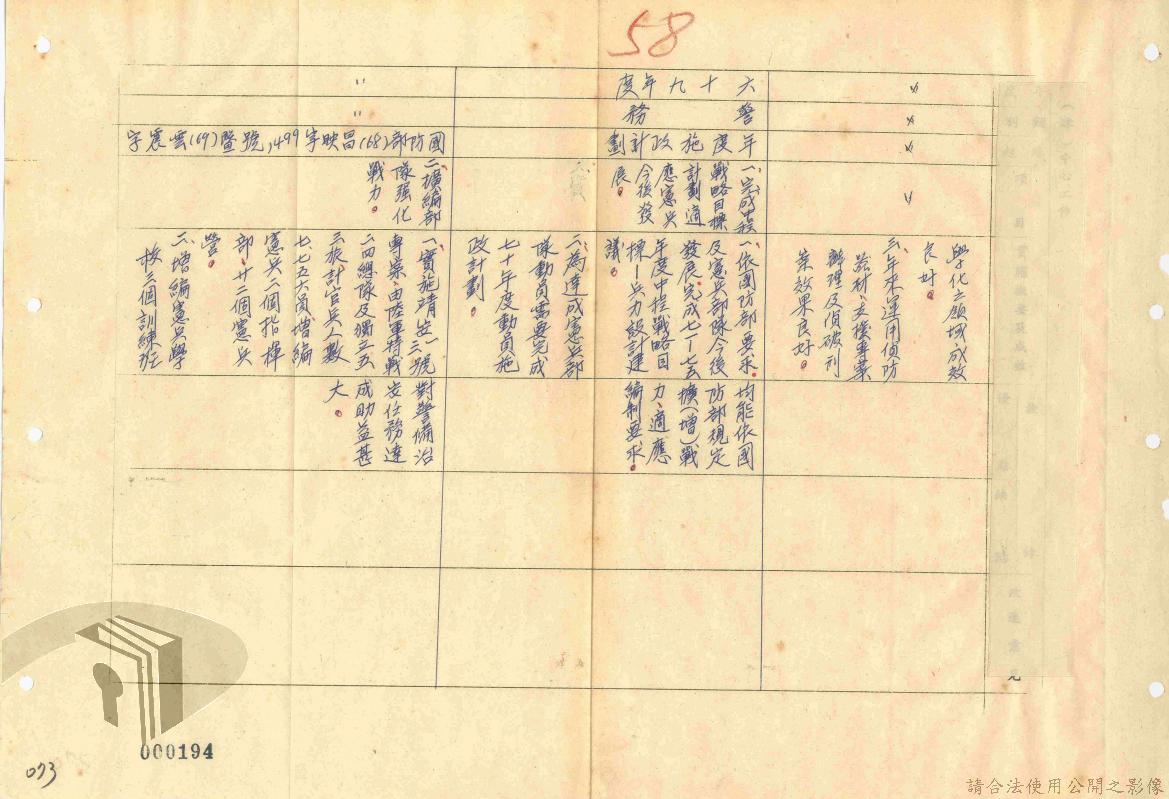 58
〃
〃
〃
〃
學化之領域成效
良好。
三、年來運用偵防
器材、支援專案
辦理及偵破刑
案效果良好。
六十九年度
警務
年度施政計劃
一、完成中程
戰略目標
計劃適
應憲兵
今後發
展。
一、依國防部要求
及憲兵部隊今後
發展、完成七一-七五
年度中程戰略目
標-兵力設計建
議。
均能依國
防部規定
擴(增)戰
力、適應
編制要求。
二、為達成憲兵部
隊動員需要完成
七十年度動員施
政計劃。
〃
〃
國防部(68)昌映字1499號暨(69)雲震字
二、擴編部
隊強化
戰力。
一、實施靖安一三號
專案、由陸軍移戰
二四總隊及獨立五
三旅計官兵人數
七七五六員、增編
憲兵二個指揮
部、廿二個憲兵
營。
二、增編憲兵學
校三個訓練班
對警備治
安任務達
成助益甚
大。
000194
073
請合法使用公開之影像